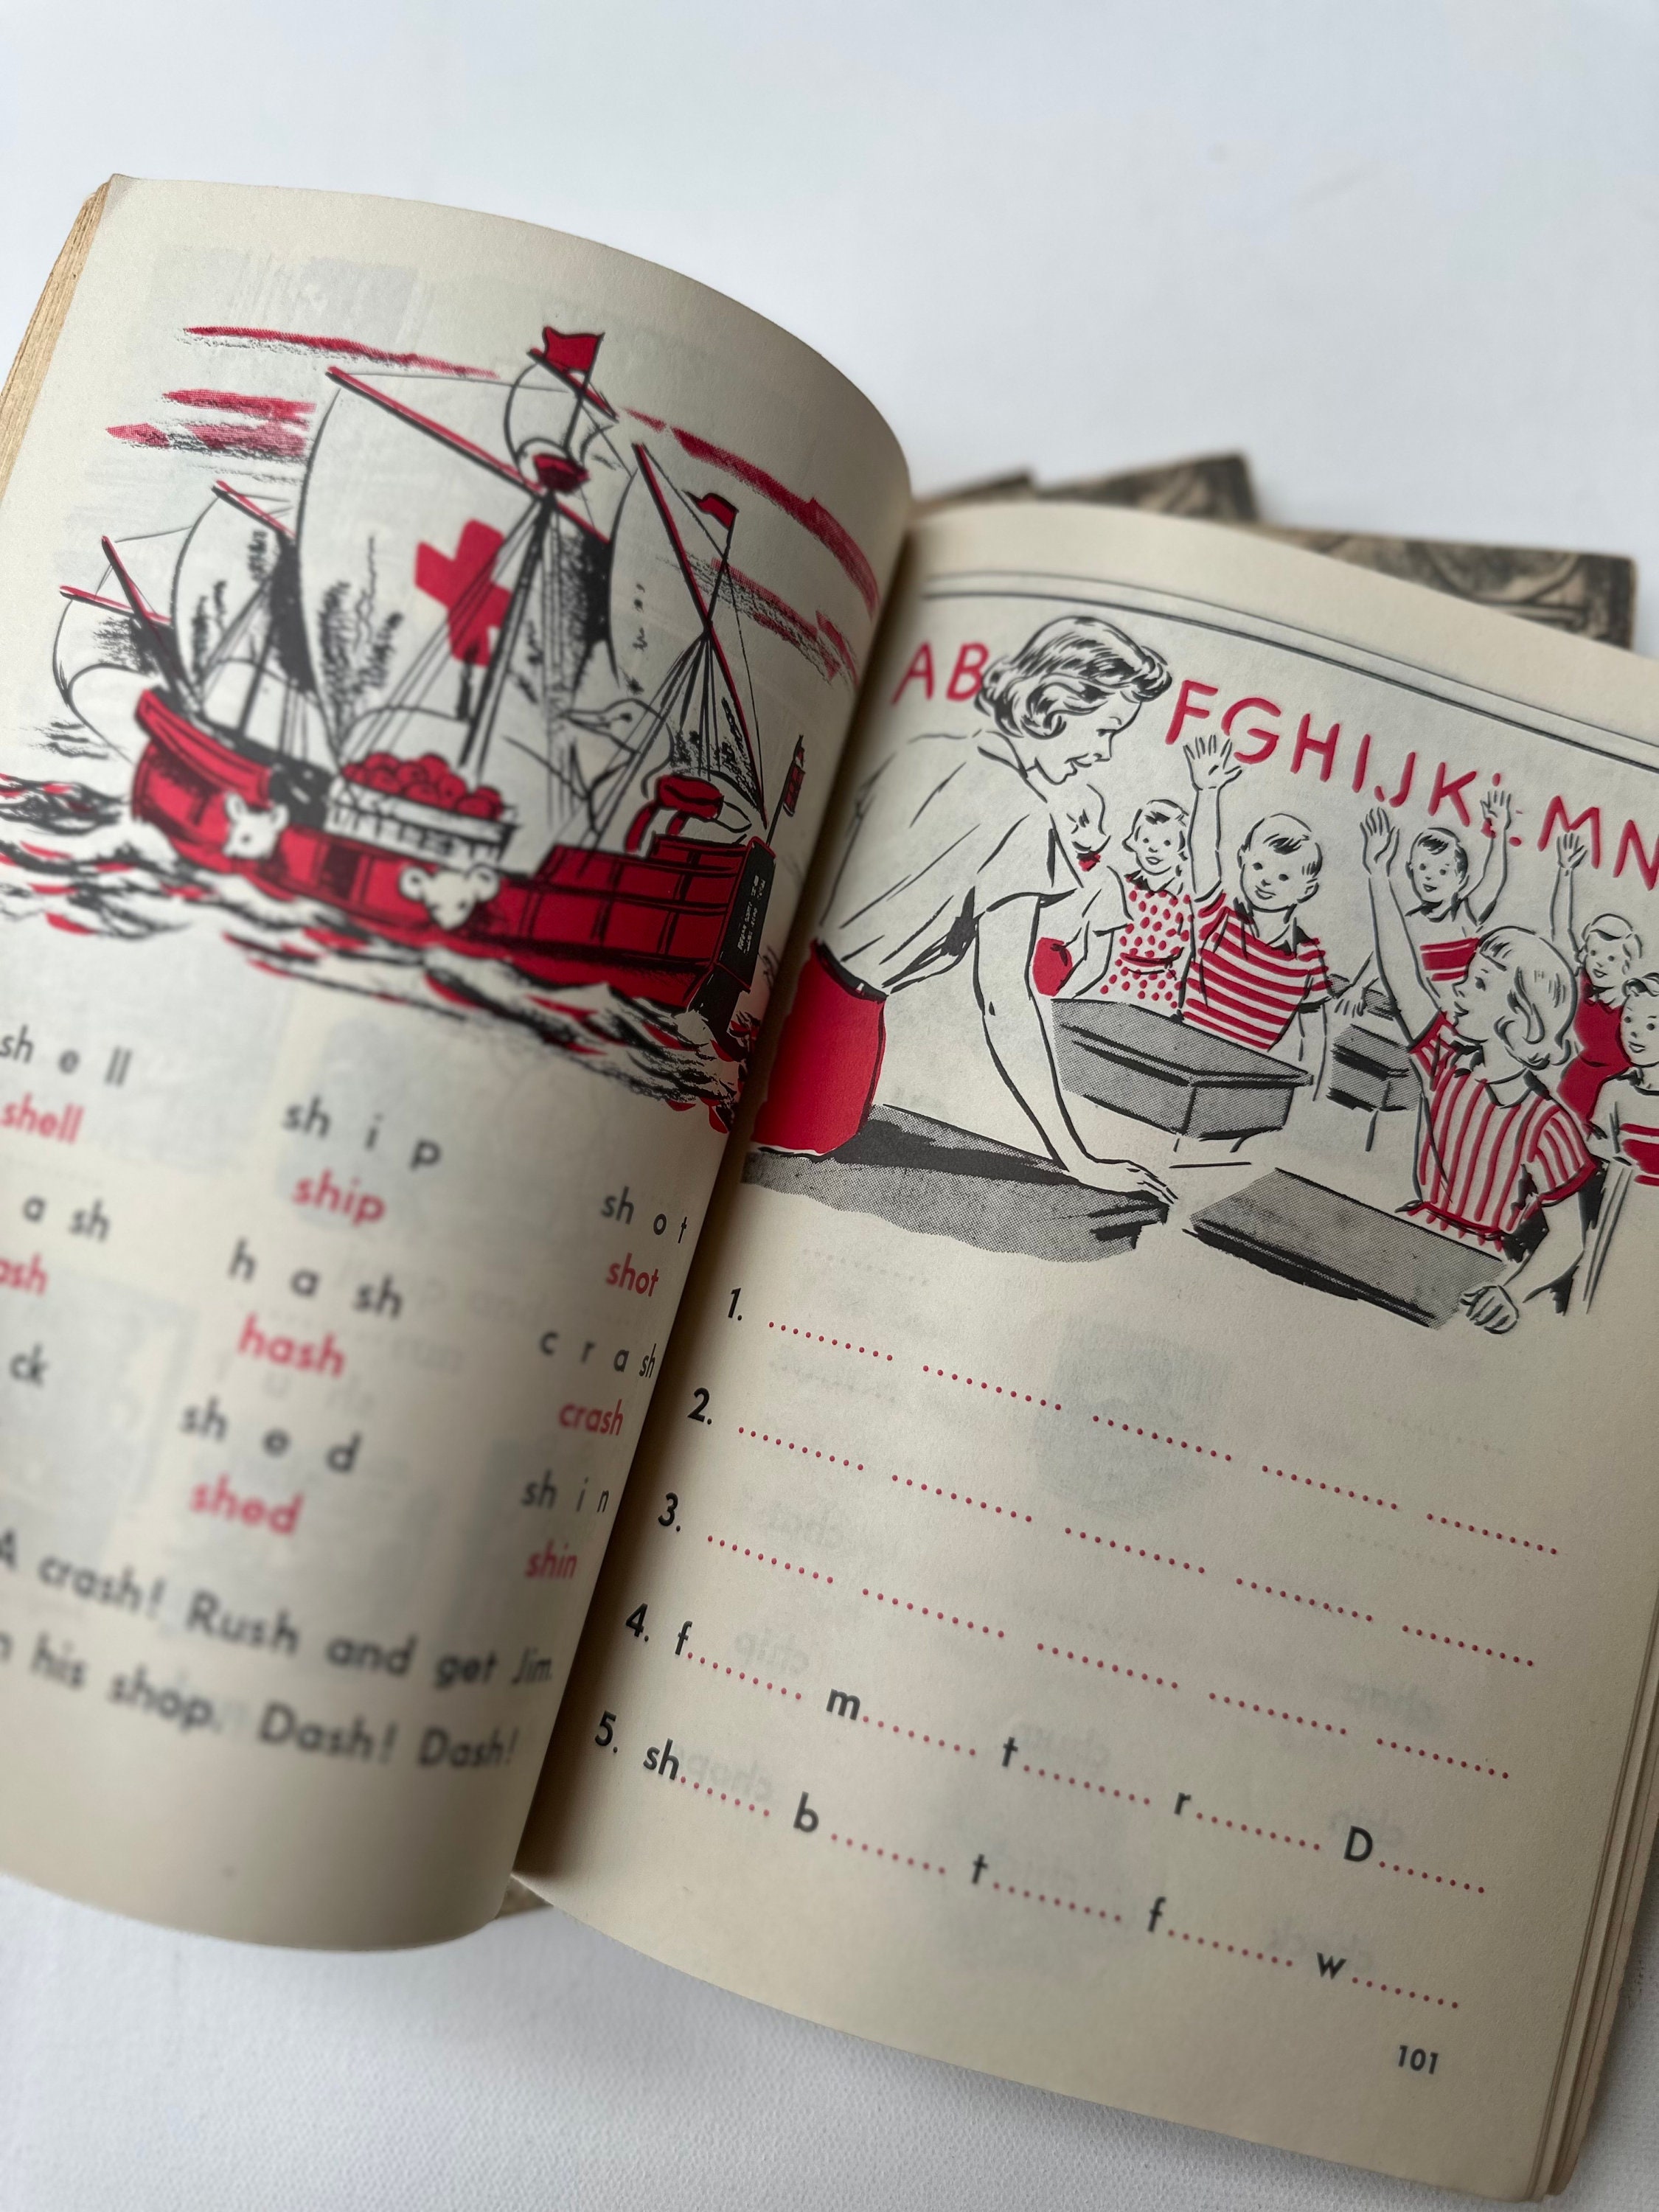 sh e ll
shell
sh i p
ship
sh o t
shot
a sh
h a sh
hash
c r a sh
crash
ck
sh e d
shed
sh i n
shin
A crash! Rush and get Jim
his shop. Dash! Dash!
AB FGHIJK MN
1. ........ ........ ........ ........ ........
2. ........ ........ ........ ........ ........
3. ........ ........ ........ ........ ........
4. f........ m........ t........ r........ D........
5. sh........ b........ t........ f........ w........
101